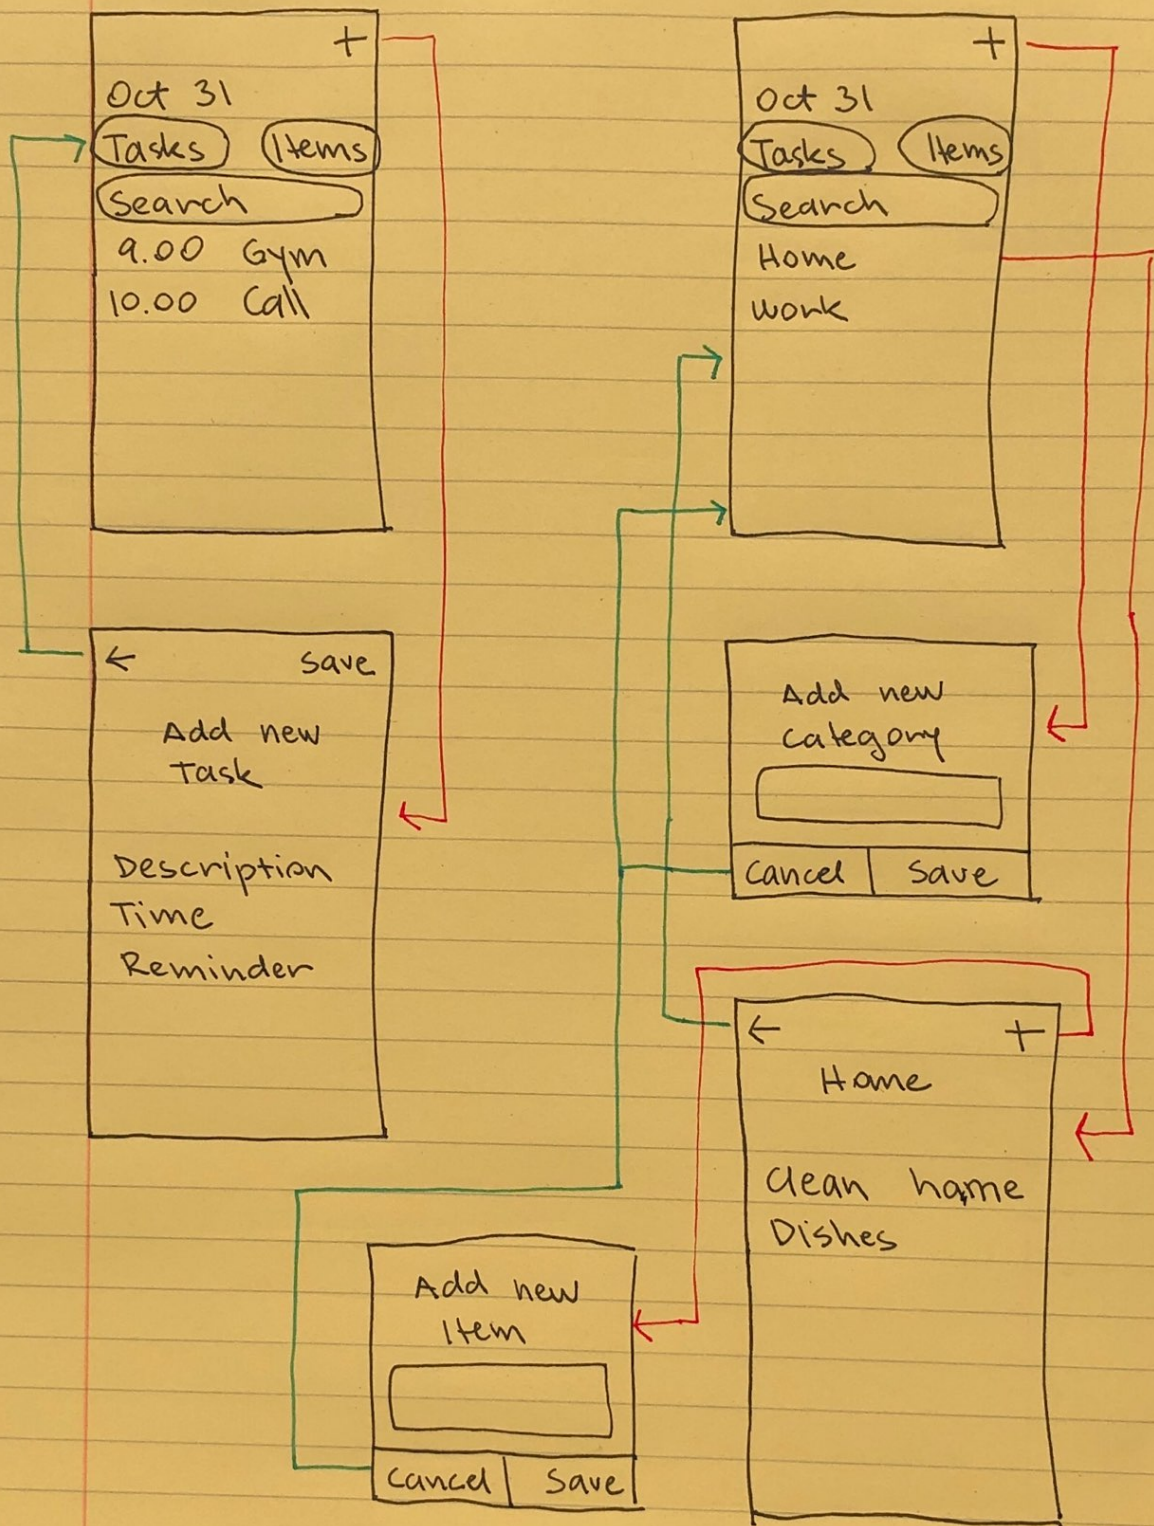 +
Oct 31
Tasks Items
Search
9.00 Gym
10.00 Call
← Save
Add new
Task
Description
Time
Reminder
+
Oct 31
Tasks Items
Search
Home
Work
Add new
category
Cancel Save
← +
Home
Clean home
Dishes
Add new
Item
Cancel Save